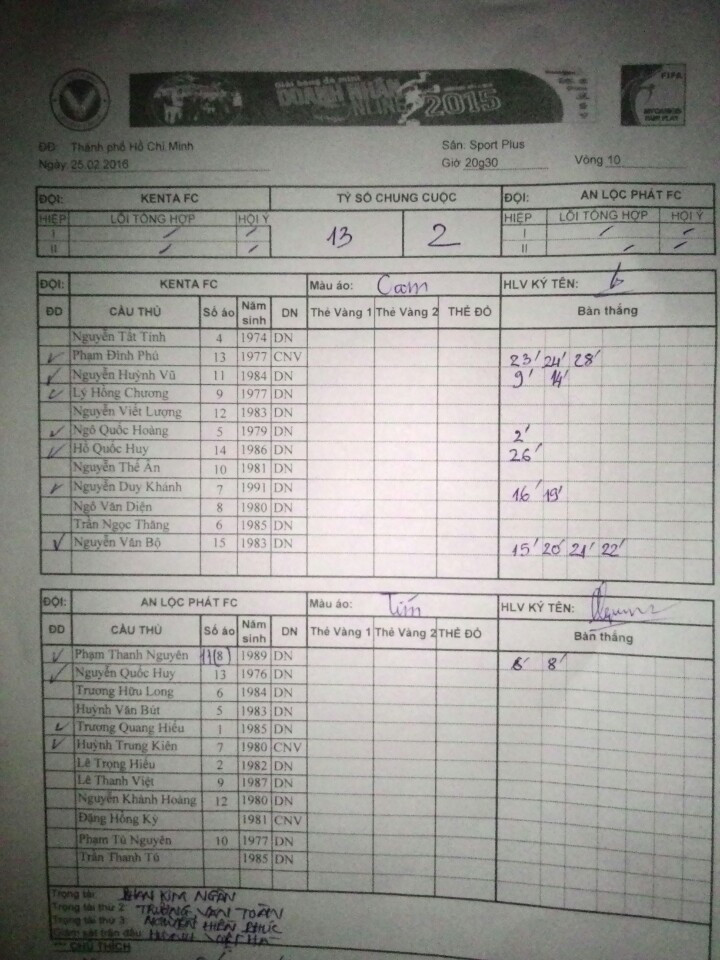 Giải bóng đá mini
DOANH NHÂN
2015
FIFA
ĐĐ: Thành phố Hồ Chí Minh Sân: Sport Plus
Ngày 25.02.2016 Giờ 20g30 Vòng 10
ĐỘI: KENTA FC TỶ SỐ CHUNG CUỘC ĐỘI: AN LỘC PHÁT FC
HIỆP LỖI TỔNG HỢP HỘI Ý 13 2 HIỆP LỖI TỔNG HỢP HỘI Ý
I I
II II
ĐỘI: KENTA FC Màu áo: Cam HLV KÝ TÊN:
ĐD CẦU THỦ Số áo Năm sinh DN Thẻ Vàng 1 Thẻ Vàng 2 THẺ ĐỎ Bàn thắng
Nguyễn Tất Tính 4 1974 DN
Phạm Đình Phú 13 1977 CNV 23' 24' 28'
Nguyễn Huỳnh Vũ 11 1984 DN 9' 14'
Lý Hồng Chương 9 1977 DN
Nguyễn Viết Lượng 12 1983 DN
Ngô Quốc Hoàng 5 1979 DN 2'
Hồ Quốc Huy 14 1986 DN 26'
Nguyễn Thế Ân 10 1981 DN
Nguyễn Duy Khánh 7 1991 DN 16' 19'
Ngô Văn Diện 8 1980 DN
Trần Ngọc Thăng 6 1985 DN
Nguyễn Văn Bộ 15 1983 DN 15' 20' 21' 22'
ĐỘI: AN LỘC PHÁT FC Màu áo: Tím HLV KÝ TÊN:
ĐD CẦU THỦ Số áo Năm sinh DN Thẻ Vàng 1 Thẻ Vàng 2 THẺ ĐỎ Bàn thắng
Phạm Thanh Nguyên 11(8) 1989 DN 6' 8'
Nguyễn Quốc Huy 13 1976 DN
Trương Hữu Long 6 1984 DN
Huỳnh Văn Bút 5 1983 DN
Trương Quang Hiếu 1 1985 DN
Huỳnh Trung Kiên 7 1980 CNV
Lê Trọng Hiếu 2 1982 DN
Lê Thanh Việt 9 1987 DN
Nguyễn Khánh Hoàng 12 1980 DN
Đặng Hồng Kỳ 1981 CNV
Phạm Tú Nguyên 10 1977 DN
Trần Thanh Tú 1985 DN
Trọng tài: PHAN KIM NGÂN
Trọng tài thứ 2: TRƯƠNG VĂN TOÀN
Trọng tài thứ 3: NGUYỄN HIỀN PHÚC
Giám sát trận đấu: HUỲNH VIỆT HÀ
*** CHÚ THÍCH